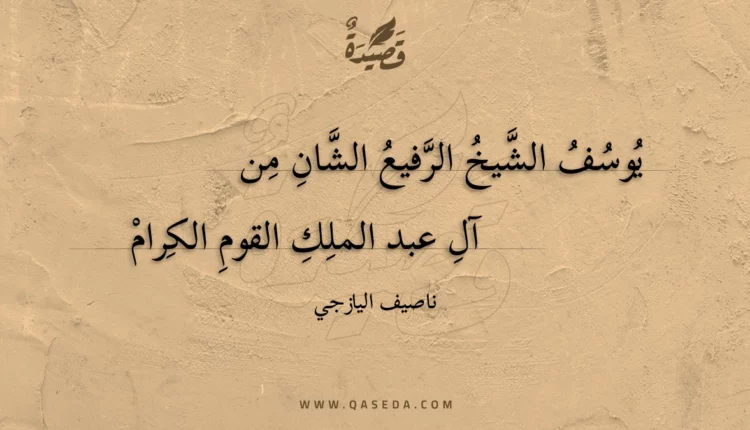 قَصِيدَةٌ
يُوسُفُ الشَّيخُ الرَّفيعُ الشَّانِ مِن
آلِ عبد الملِكِ القومِ الكِرامْ
ناصيف اليازجي
WWW.QASEDA.COM